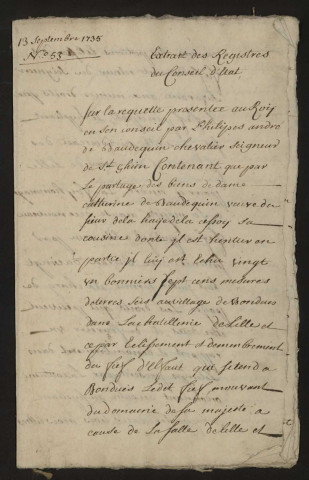 13 Septembre 1735
N.° 53
Extrait des Registres
du Conseil d'Etat
Sur la requette presentée au Roÿ
en son conseil par Philipes andre
de Baudequin chevalier Seigneur
de St. Ghin Contenant que par
le partage des biens de dame
catherine de Baudequin veuve du
sieur de la haÿe de la cessoy sa
cousine dont jl est heritier en
partie jl luÿ est echu vingt
un bonniers sept cens mesures
de terres scis au village de Bondues
dans La chatellenie de Lille et
ce par Eclissement et demembrement
du fief d'Elvaut qui s'etend a
Bondues Ledit fief mouvant
du domaine de sa majesté a
cause de La Salle de Lille et